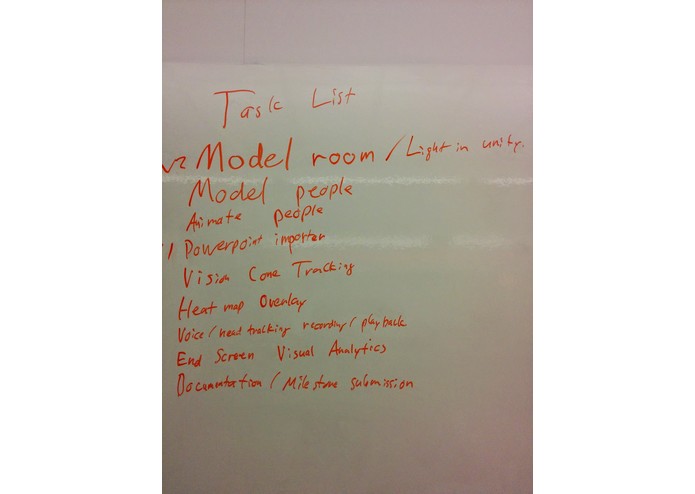 Task List
Model room / Light in unity.
Model people
Animate people
Powerpoint importer
Vision Cone Tracking
Heat map Overlay
Voice / head tracking recording / playback
End Screen Visual Analytics
Documentation / Milestone submission